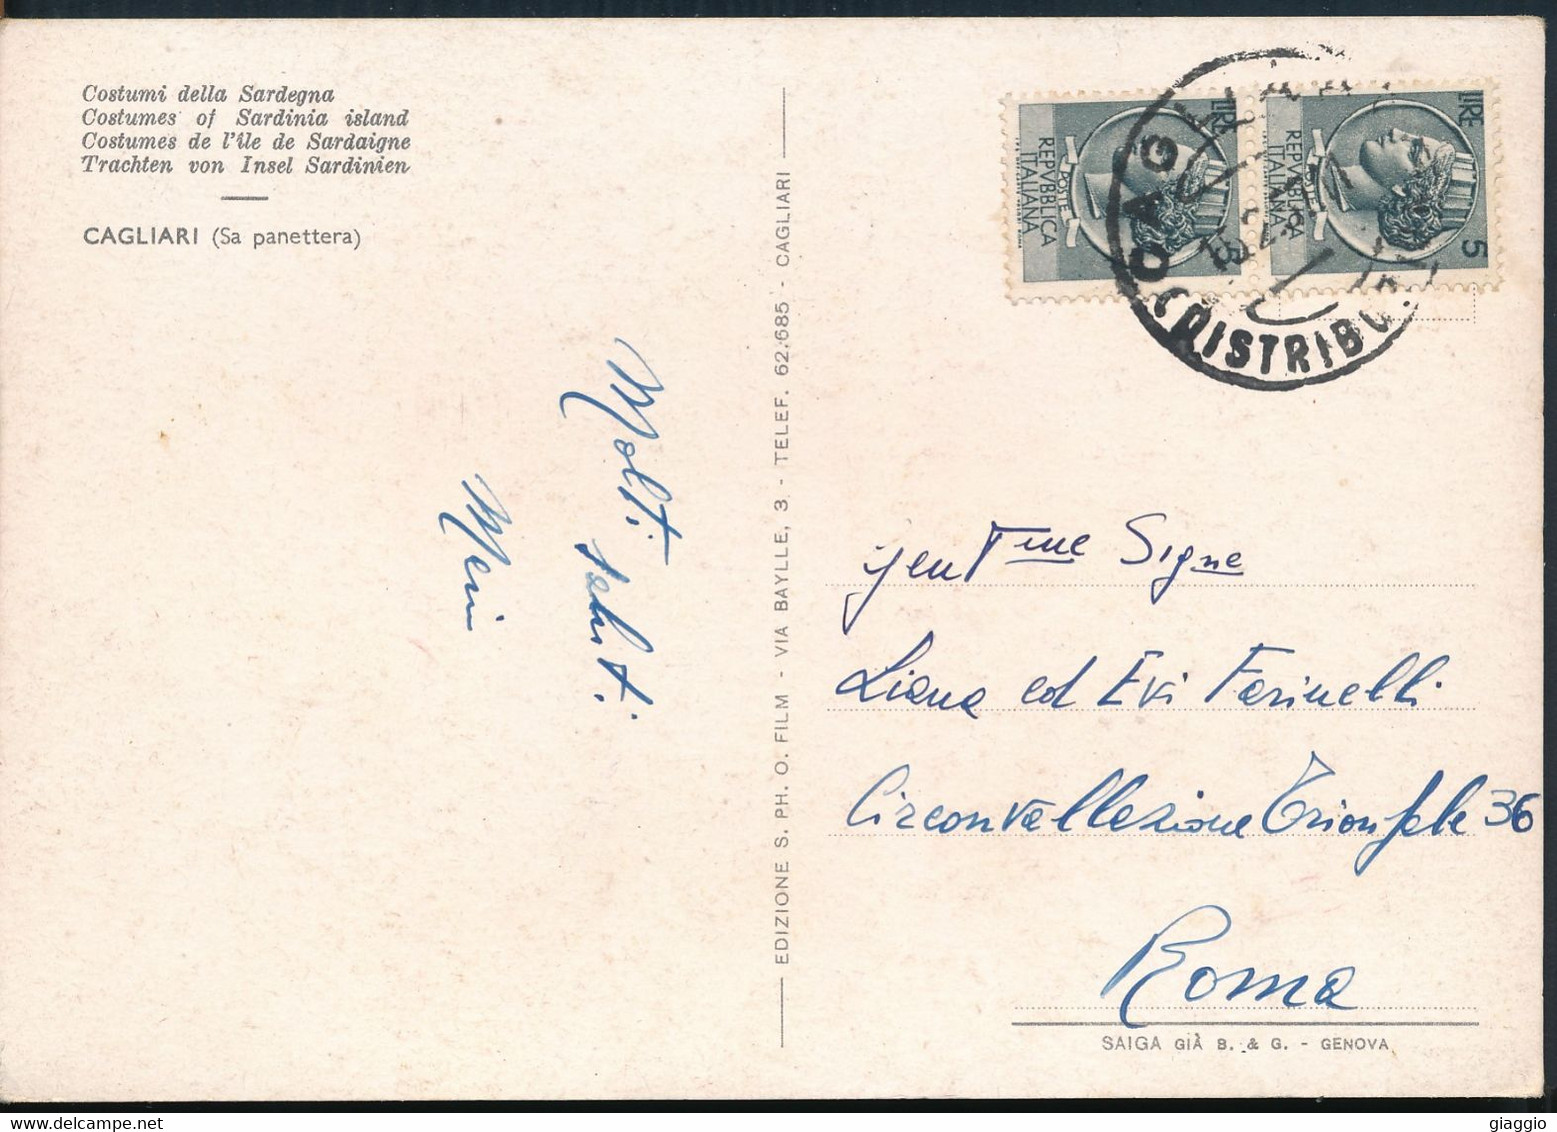 Costumi della Sardegna
Costumes of Sardinia island
Costumes de l'île de Sardaigne
Trachten von Insel Sardinien
CAGLIARI (Sa panettera)
Molti
saluti
Meri
EDIZIONE S. PH. O. FILM - VIA BAYLLE, 3 - TELEF. 62.685 - CAGLIARI
LIRE 5
POSTE
REPVBBLICA
ITALIANA
LIRE 5
POSTE
REPVBBLICA
ITALIANA
CAG
DISTRIBU
Gent.me Signe
Liana ed Evi Farinelli
Circonvallazione Trionfale 36
Roma
SAIGA GIÀ B. & G. - GENOVA
giaggio